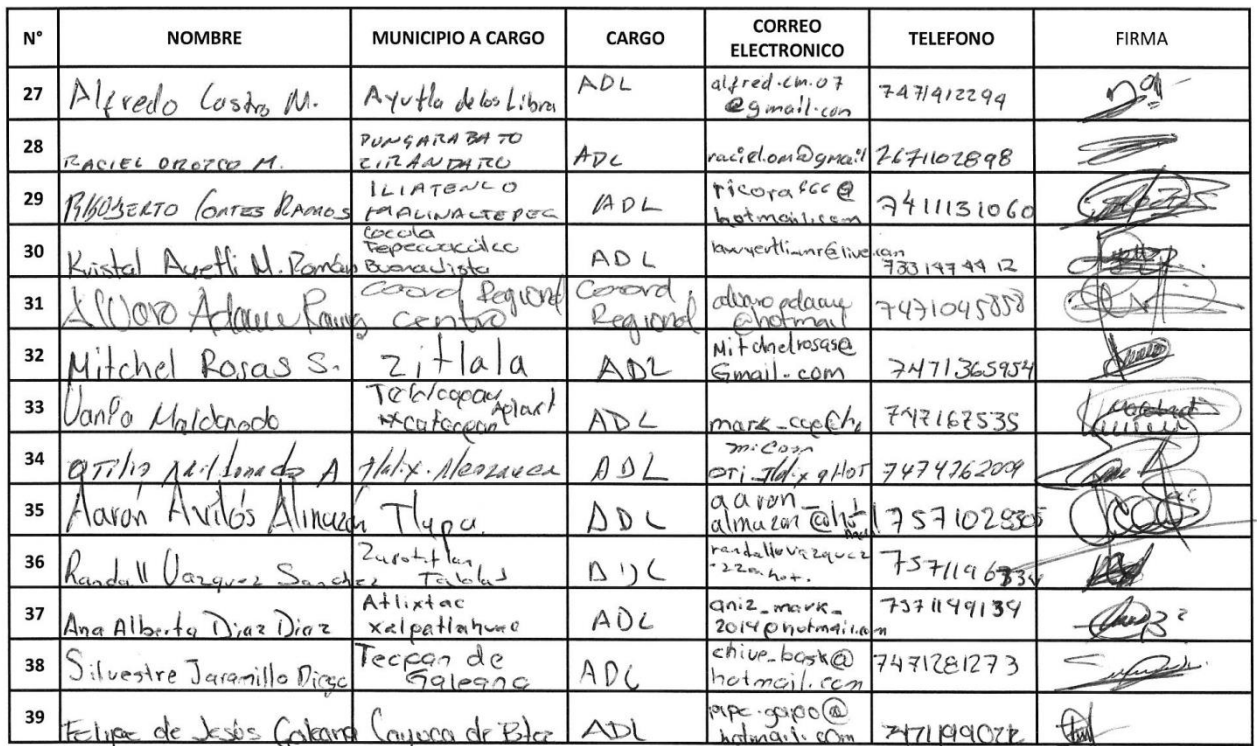 N° NOMBRE MUNICIPIO A CARGO CARGO CORREO ELECTRONICO TELEFONO FIRMA
27 Alfredo Castro M. Ayutla de los Libres ADL alfred.cm.07 @gmail.com 7471412294
28 RACIEL OROZCO M. PUNGARABATO ZIRANDARO ADL raciel.om@gmail 2671102898
29 RIGOBERTO CORTES RAMOS ILIATENCO MALINALTEPEC ADL @ hotmail.com 7411131060
30 Kristal Ayetli M. Román Cocula Tepecuacuilco Buenavista ADL
31 Alvaro Adame Coord Regional Centro Coord Regional alvaro adame @hotmail 7471045858
32 Mitchel Rosas S. Zitlala ADL Mitchelrosas@ Gmail.com 7471365954
33 Maldonado ADL 747167535
34 A ADL 7474262009
35 Aarón Avilés Almazán Tlapa ADL aaron_ almazan @hotmail 7571028305
36 Randall Vazquez Sanchez Zapotitlan Tablas ADL randallvazquez
37 Ana Alberta Diaz Diaz Atlixtac Xalpatlahuac ADL aniz_mark_ 2014@hotmail.com 7571149134
38 Silvestre Jaramillo Diego Tecpan de Galeana ADL chive_bask@ hotmail.com 7471281273
39 Felipe de Jesús Galeana Coyuca de Btez ADL @ hotmail.com